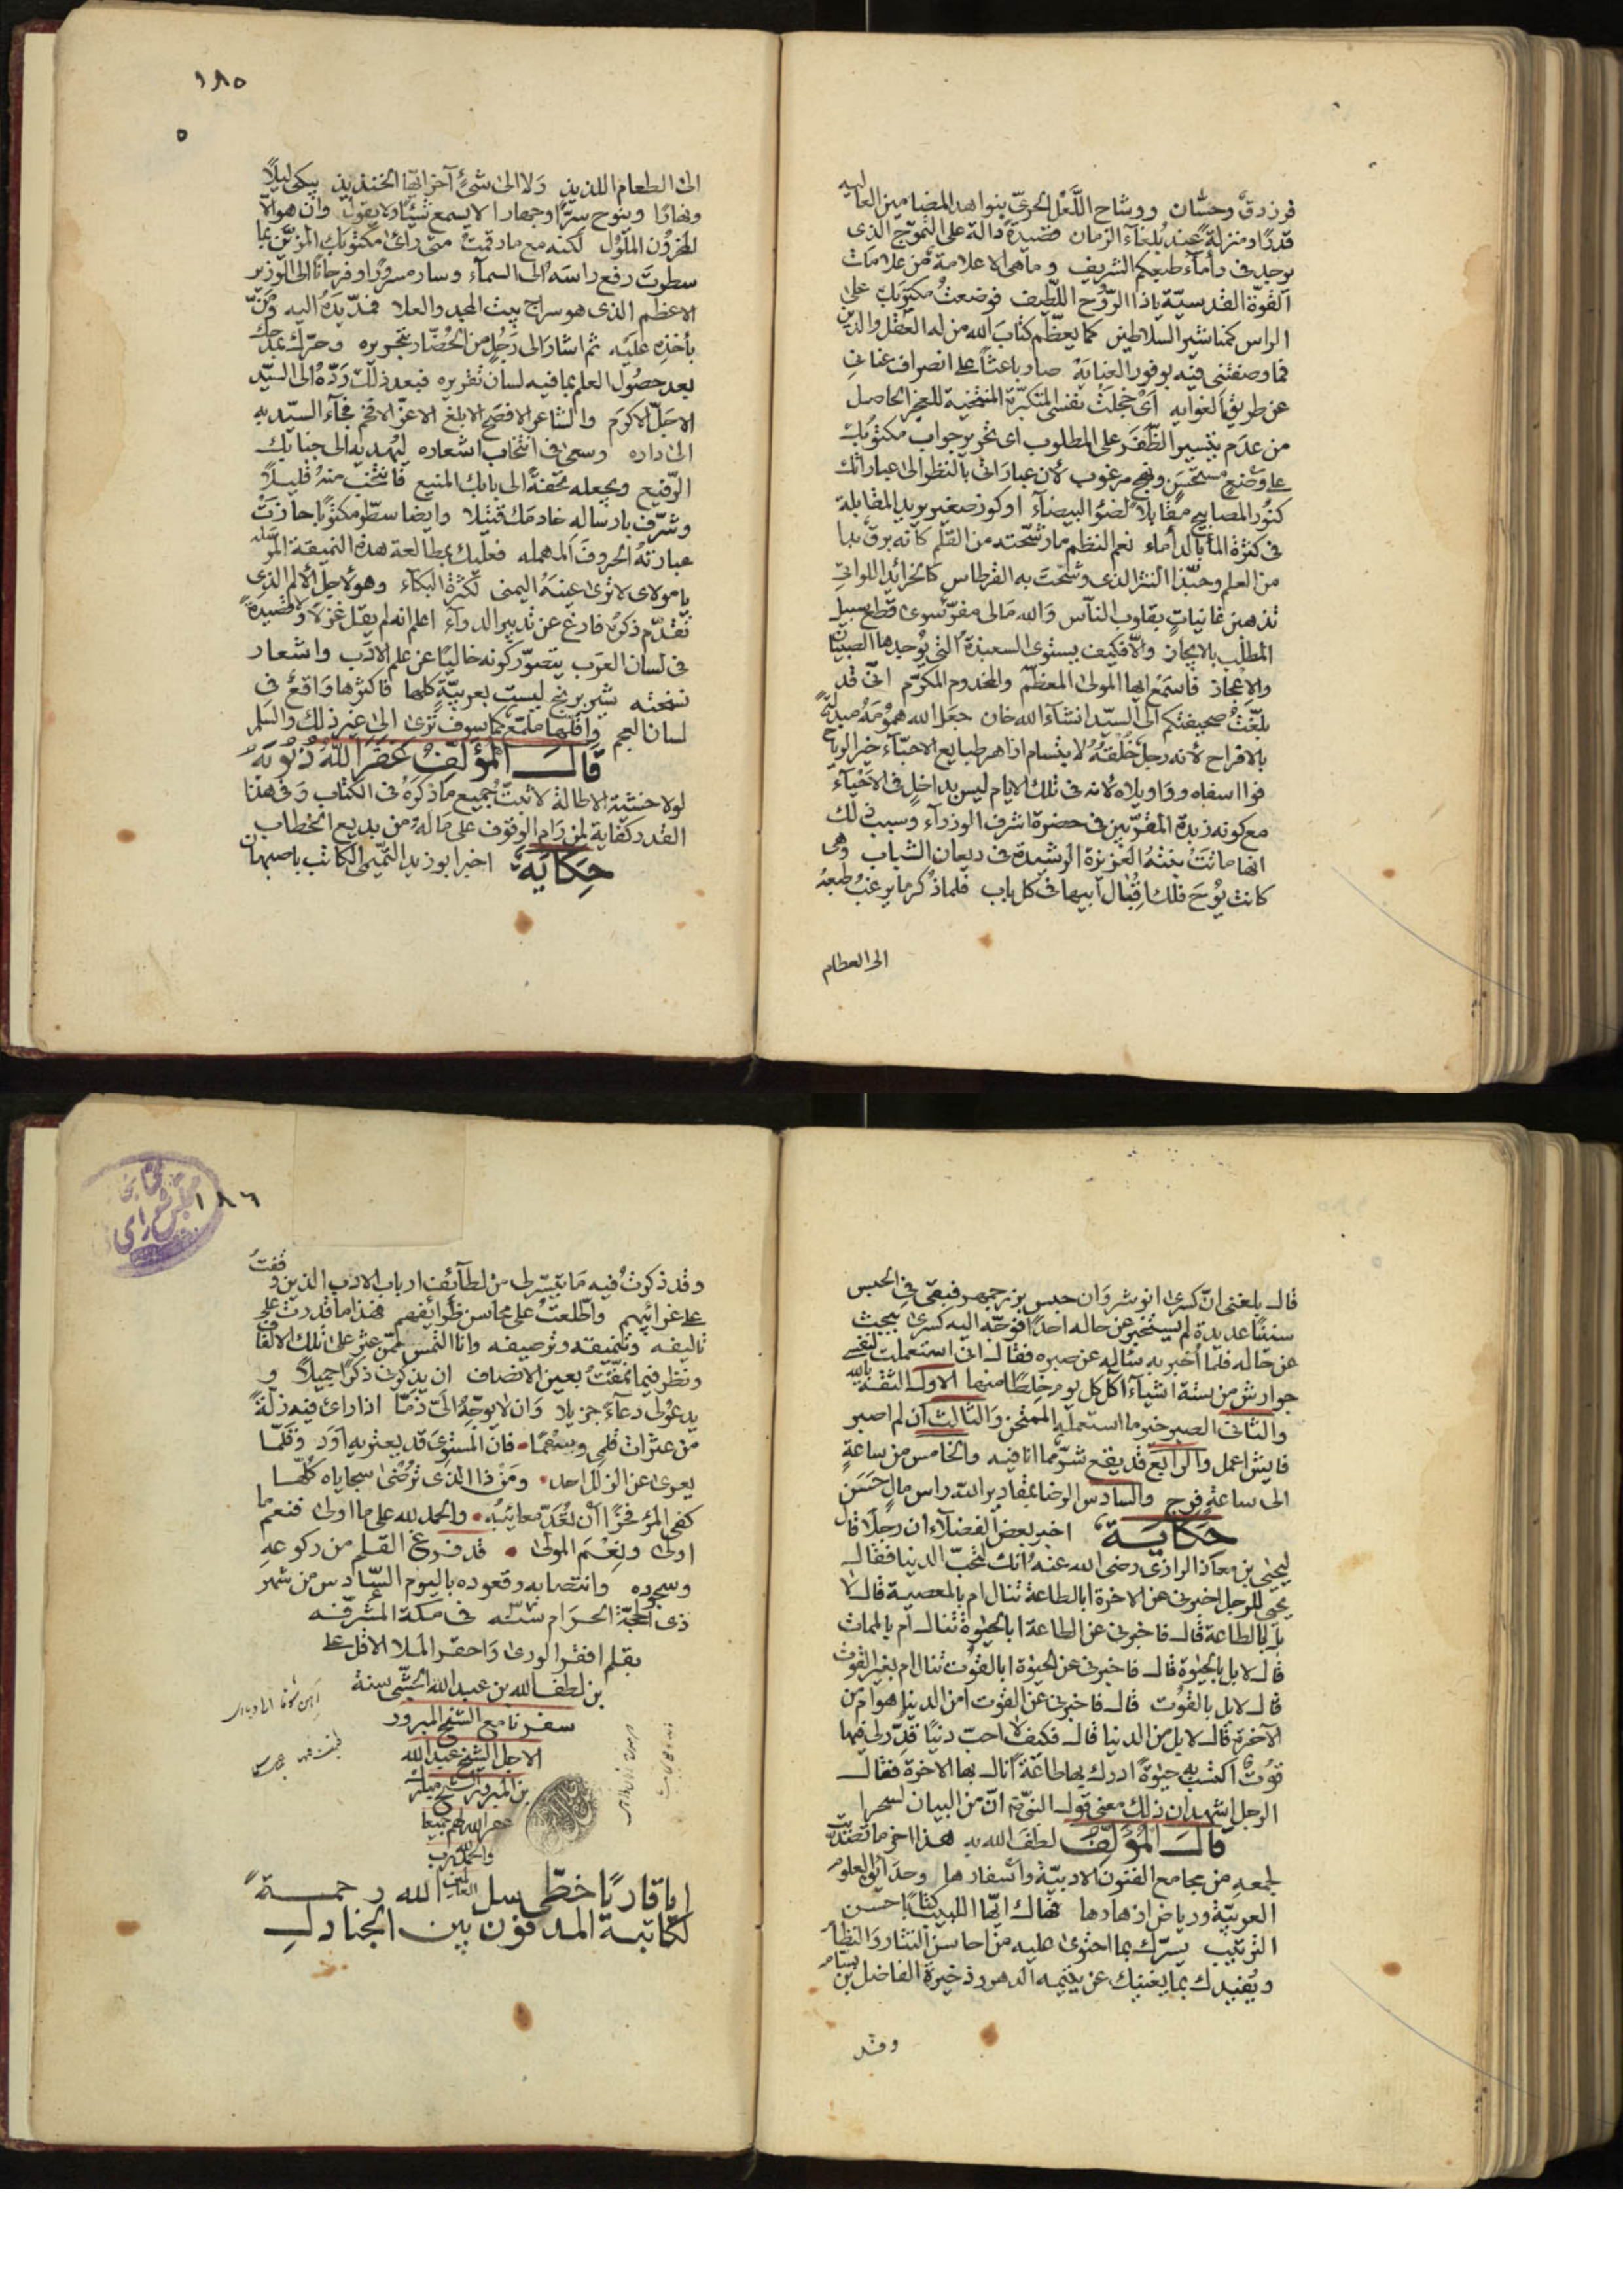 فرزدق وحسّان ووشاح اللَّعْل الحرىّ بنوا هذ المضامين العاليه
قدرًا ومنزلةً عند بُلغآء الزمان قصيدةً دالة على التموّج الذى
يوجد فى دأمآء طبعكم الشريف وماهى الا علامة من علامات
القوّة القدسيّة ياذا الرّوُح اللّطيف فوضعتُ مكتوبك على
الراس كمناشير السلاطين كما يعظّم كتابَ الله من له العقل والدين
فما وصفتنى فيه بوفور العنايَة صار باعثًا على انصراف عنانى
عن طريق الغوايه اَىْ خجلَتْ نفسى المتكبرّة المنتخبة للعجز الحاصل
من عدَم تيسير الظّفَر على المطلوب اى تحرير جواب مكتوبك
على وضْعٍ مستحسَنٍ ونهج مرغوب لأن عباراتى بالنظر الى عباراتك
كنُور المصابيح مقابلاً لضوُ البيضآء اوكوز صغير يريد المقابلة
فى كثرة المأ بالدأماء نعم النظم مارشّحته من القلم كانه برق بدا
من العلم وحبّذا النثر الذى وشّحتَ به القرطاس كالخرائد اللواتى
تذهبن غانياتٍ بقلوب النآس وَالله مَالى مفرّ سوى قطع سبيل
المطْلب بالايجاز والّا فكيف يستوى السعبذة التى يُوجدها الصبيان
والاعجاز فاسمع ايها المولى المعظّم والمخدوم المكرّم انّى قد
بلّغتُ صحيفتكم الى السيّد انشآء الله خان جعل الله همُومَهُ مبدلةً
بالافراح لأنه رجلٌ خُلْقَهُ لابتسام ازاهر طبايع الاحبّآء خير الرياح
فوا اسفاه وواويلاه لانه فى تلك الايام ليس بداخل فى الاحْيآء
مع كونه زبدة المقرّبين فى حضرة اشرف الوزرآء وسبب ذلك
انها ماتَتْ بنتهُ العزيزة الرشيدة فى ريعان الشباب وهى
كانت يُوْحَ فلك اِقبُال ابيها فى كل باب فلماذُ كرما يرغبُ طبعهُ
الى الطعام
١٨٥
٥
الى الطعام اللذيذ وَلا الى شئٍ آخر ايّها الخنذيذ يبكى ليلًا
ونهارًا وينوح سِرًّا وجهارا لا يسمع شيئًا ولا يقول وان هوالّا
لمحزُون الملوُل لكنه مع ماد قمتُ متى راى مكتوبك المزيّن بما
سطرتَ رفع راسَهُ الى السمآء وسار مسرورًا وفرحانًا الى الوزير
الاعظم الذى هو سراج بيت المجد والعلا فمدّ يدَهُ اليه ومَنّ
بأخذِه عليَه ثم اشارَ الى رَجُلٍ من الحُضّار بتحريره وحرّك بمدحك
بعد حصُول العلم بما فيه لسانُ تقريره فبعد ذلك رَدّهُ الى السيّد
الاجلّ الاكرَم والشاعر الافصَح الابلغ الاعزّ الافخم فجآء السيّد به
الى داره وسعى فى انتخاب اشعاره ليُهديه الى جنابك
الرّفيع ويجعله تحفةً الى بابك المنيع فانتخبَ منهُ قليلًا
وشرّف بارساله خادمَك قتيلا وايضا سطّر مكتوبًا حازتْ
عبارتهُ الحروفَ المهمله فعليك بمطالعة هذه النميقة المرسله
يا مولاى لا ترى عينهُ اليمنى لكثرة البكآء وهو لاجل الألم الذى
تقدّم ذكرهُ فارغ عن تدبير الدوآء اعلم انه لم يقل غزلًا ولا قصيدةً
فى لسان العرَب يتصوّر كونه خاليًا عن علم الادَب واشعار
نسخته شير برنج ليست بعربيّةٍ كلها فاكثرها واقع فى
لسان العجم واقلّها ملمّع كما سوف تُرى الى غير ذلك والسّلم
قالَ المُؤلّفُ غَفَرَ اللهُ ذُنوُبَهُ
لولا خشية الاطالة لاثبتّ جميع ماذكرَهُ فى الكتاب وَفى هذا
القدر كفاية لمن رَام الوقوف على مَالهُ من بديع الخطاب
حِكايَة اخبر ابوزيد التّيمى الكاتب باصبهان
قال بلغنى انّ كسرى انوشروَان حبس بوزرجمهر فبقى فى الحبس
سنينًا عديدة لم يستخبر عن حاله احدًا فوجّه اليه كسرى يبحث
عن حاله فلما اُخبر به سئاله عن صبره فقال انى استعملت لنفسى
جوارش من ستة اشياء آكل كل يومٍ خلطًا منها الاول الثقة بالله
والثانى الصبر خير ما استعمله الممتحن وَالثالث ان لم اصبر
فايش اعمل والرابع قد يقع شرّ مما انا فيه والخامس من ساعةٍ
الى ساعةٍ فرج والسادس الرضا بمقادير الله راس مالٍ حسَن
حكايَة اخبر بعض الفضلاء ان رجلًا قال
ليحيى بن معاذ الرازى رضى الله عنه اُنك لتحبّ الدنيا فقال
يحيى للرجل اخبرنى عن الاخرة ابالطاعة تنال ام بالمعصية قال لا
بل بالطاعة قال فاخبرنى عن الطاعة ابالحيوة تنال أم بالممات
قال لا بل بالحيوة قال فاخبرنى عن الحيوة ابالقوُت تنال ام بغير القوت
قال لا بل بالقوُت قال فاخبرنى عن القوت امن الدنيا هو ام من
الآخرة قال لا بل من الدنيا قال فكيف لا احبّ دنيًا قُدّر لى فيها
قوتٌ اكتسب به حيوةً ادرك بها طاعةً انال بها الاخرة فقال
الرجل اشهد ان ذلك معنى قول النبّى انّ من البيان لسحرا
قالَ المُؤَلِّفُ لطفَ الله به هذا اخر ما تصدّيت
لجمعهِ من مجامع الفنون الادبيّة وأسفارها وحدَائق العلوم
العربيّة ورياض ازهارها فهاك ايّها اللبيب كتابًا حسَن
الترتيب يسرّك بما احتوى عليه من احاسن النثار والنظام
ويُفيدك بما يغنيك عن يتيمة الدهر وذخيرة الفاضل بن بسام
وقد
١٨٦
وقد ذكرتُ فيه مَا تيسّر لى من لطآئف ارباب الادب الذين وقفتُ
على غرائبهم واطّلعتُ على محاسن ظرائفهم فهذا ما قدرت على
تاليفه وتنميقه وترصيفه وانا التمس ممّن عثر على تلك الالفاف
ونظر فيما نمّقتُ بعين الانصاف ان يذكرنى ذكرًا جميلًا و
يدعوْلى دعآءً جزيلا وَان لا يوجّهُ الىّ ذمّا اذا راى فيه زلّةً
من عثرات قلمى فان المستوى قد يعتريه اوَد وقلّما
يعرى عن الزلل احد ومَنْ ذا الذى تُرْضى سجاياه كلّها
كفى المرُ فخرًا اَنْ تُعَدّ معائبُه والحمد لله على ما اولى فنعم ما
اولى ولنِعْمَ المولى قد فرغ القلم من ركوعهِ
وسجوده وانتصابه وقعوده باليوم السّادس من شهر
ذى الحجّة الحرَام سنه فى مكة المشرّفه
بقلم افقر الورى وَاحقر الملا الاقل على
بن لطف الله بن عبد الله الجشّى سنة
سفرنا مع الشيخ المبرور
الاجل الشيخ عبد الله
بن المبرور الشيخ
غفر الله لهم جميعا
والحمد لله رب
العالمين
ايا قاريًا خطّى سل الله رحمةً
لكاتبه المدفون بين الجنادلِ